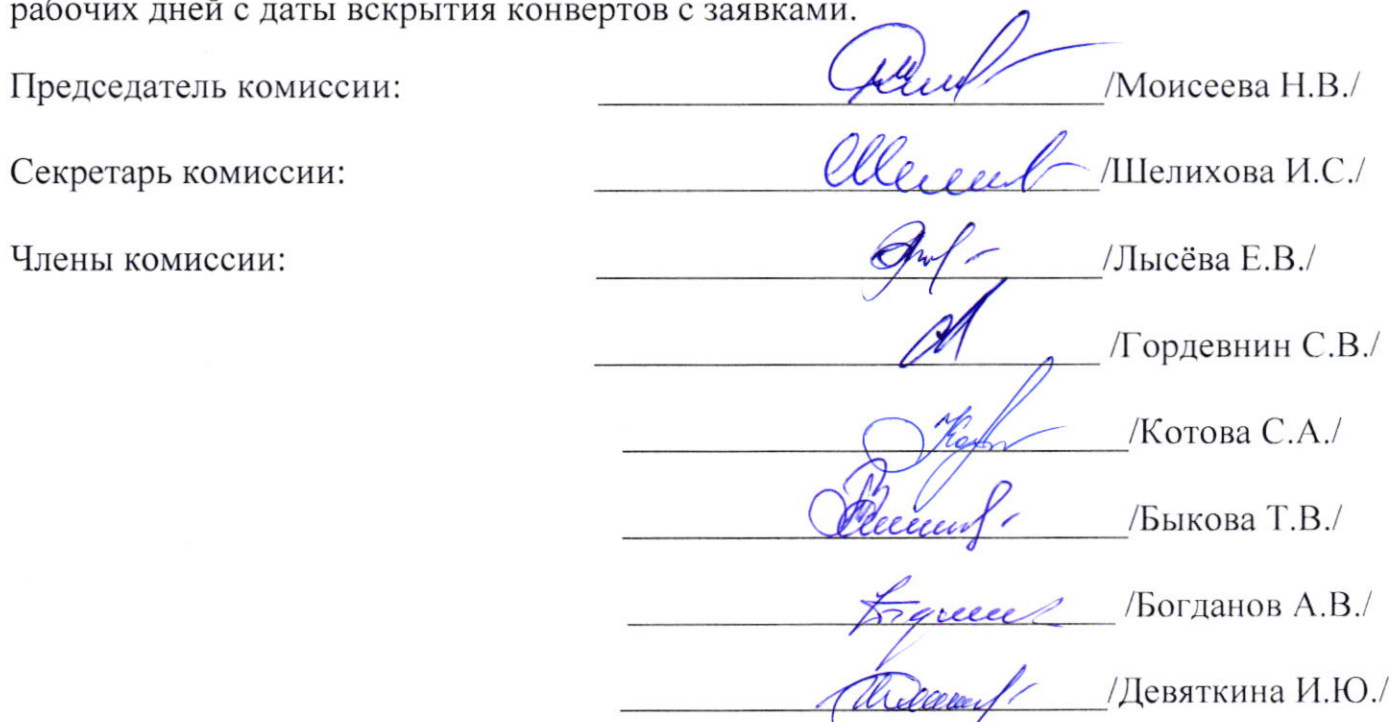 рабочих дней с даты вскрытия конвертов с заявками.
Председатель комиссии: /Моисеева Н.В./
Секретарь комиссии: /Шелихова И.С./
Члены комиссии: /Лысёва Е.В./
/Гордевнин С.В./
/Котова С.А./
/Быкова Т.В./
/Богданов А.В./
/Девяткина И.Ю./